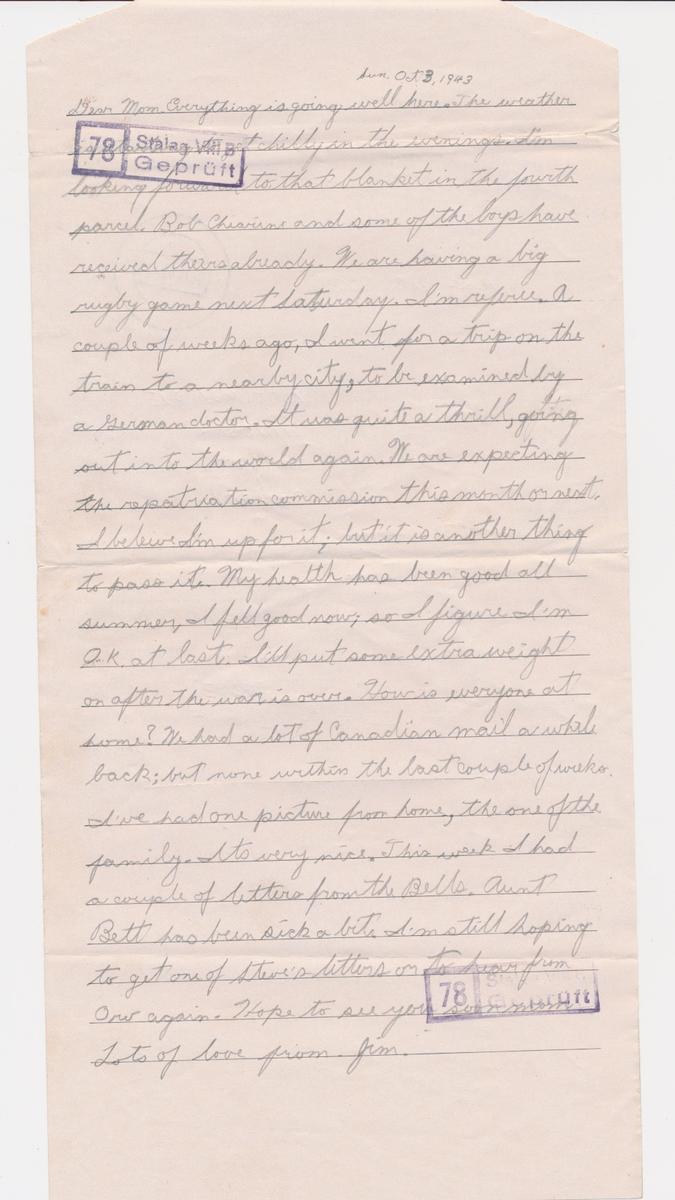 Sun. Oct. 3, 1943
Dear Mom. Everything is going well here. The weather
78 Stalag VIII B Geprüft
is starting to get chilly in the evenings. I'm
looking forward to that blanket in the fourth
parcel. Bob and some of the boys have
received theirs already. We are having a big
rugby game next Saturday. I'm referee. A
couple of weeks ago, I went for a trip on the
train to a nearby city, to be examined by
a German doctor. It was quite a thrill, going
out into the world again. We are expecting
the repatriation commission this month or next.
I beleive I'm up for it; but it is another thing
to pass it. My health has been good all
summer, I fell good now; so I figure I'm
O.K. at last. I'll put some extra weight
on after the war is over. How is everyone at
home? We had a lot of Canadian mail a while
back; but none within the last couple of weeks.
I've had one picture from home, the one of the
family. Its very nice. This week I had
a couple of letters from the Bells. Aunt
Bett has been sick a bit. I'm still hoping
to get one of Steve's letters or to hear from
Orv again. Hope to see you soon mom
78 Geprüft
Lots of love from Jim.